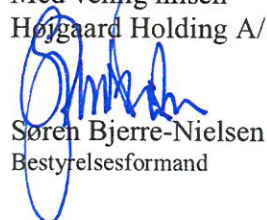 Med venlig hilsen
Højgaard Holding A/
Søren Bjerre-Nielsen
Bestyrelsesformand